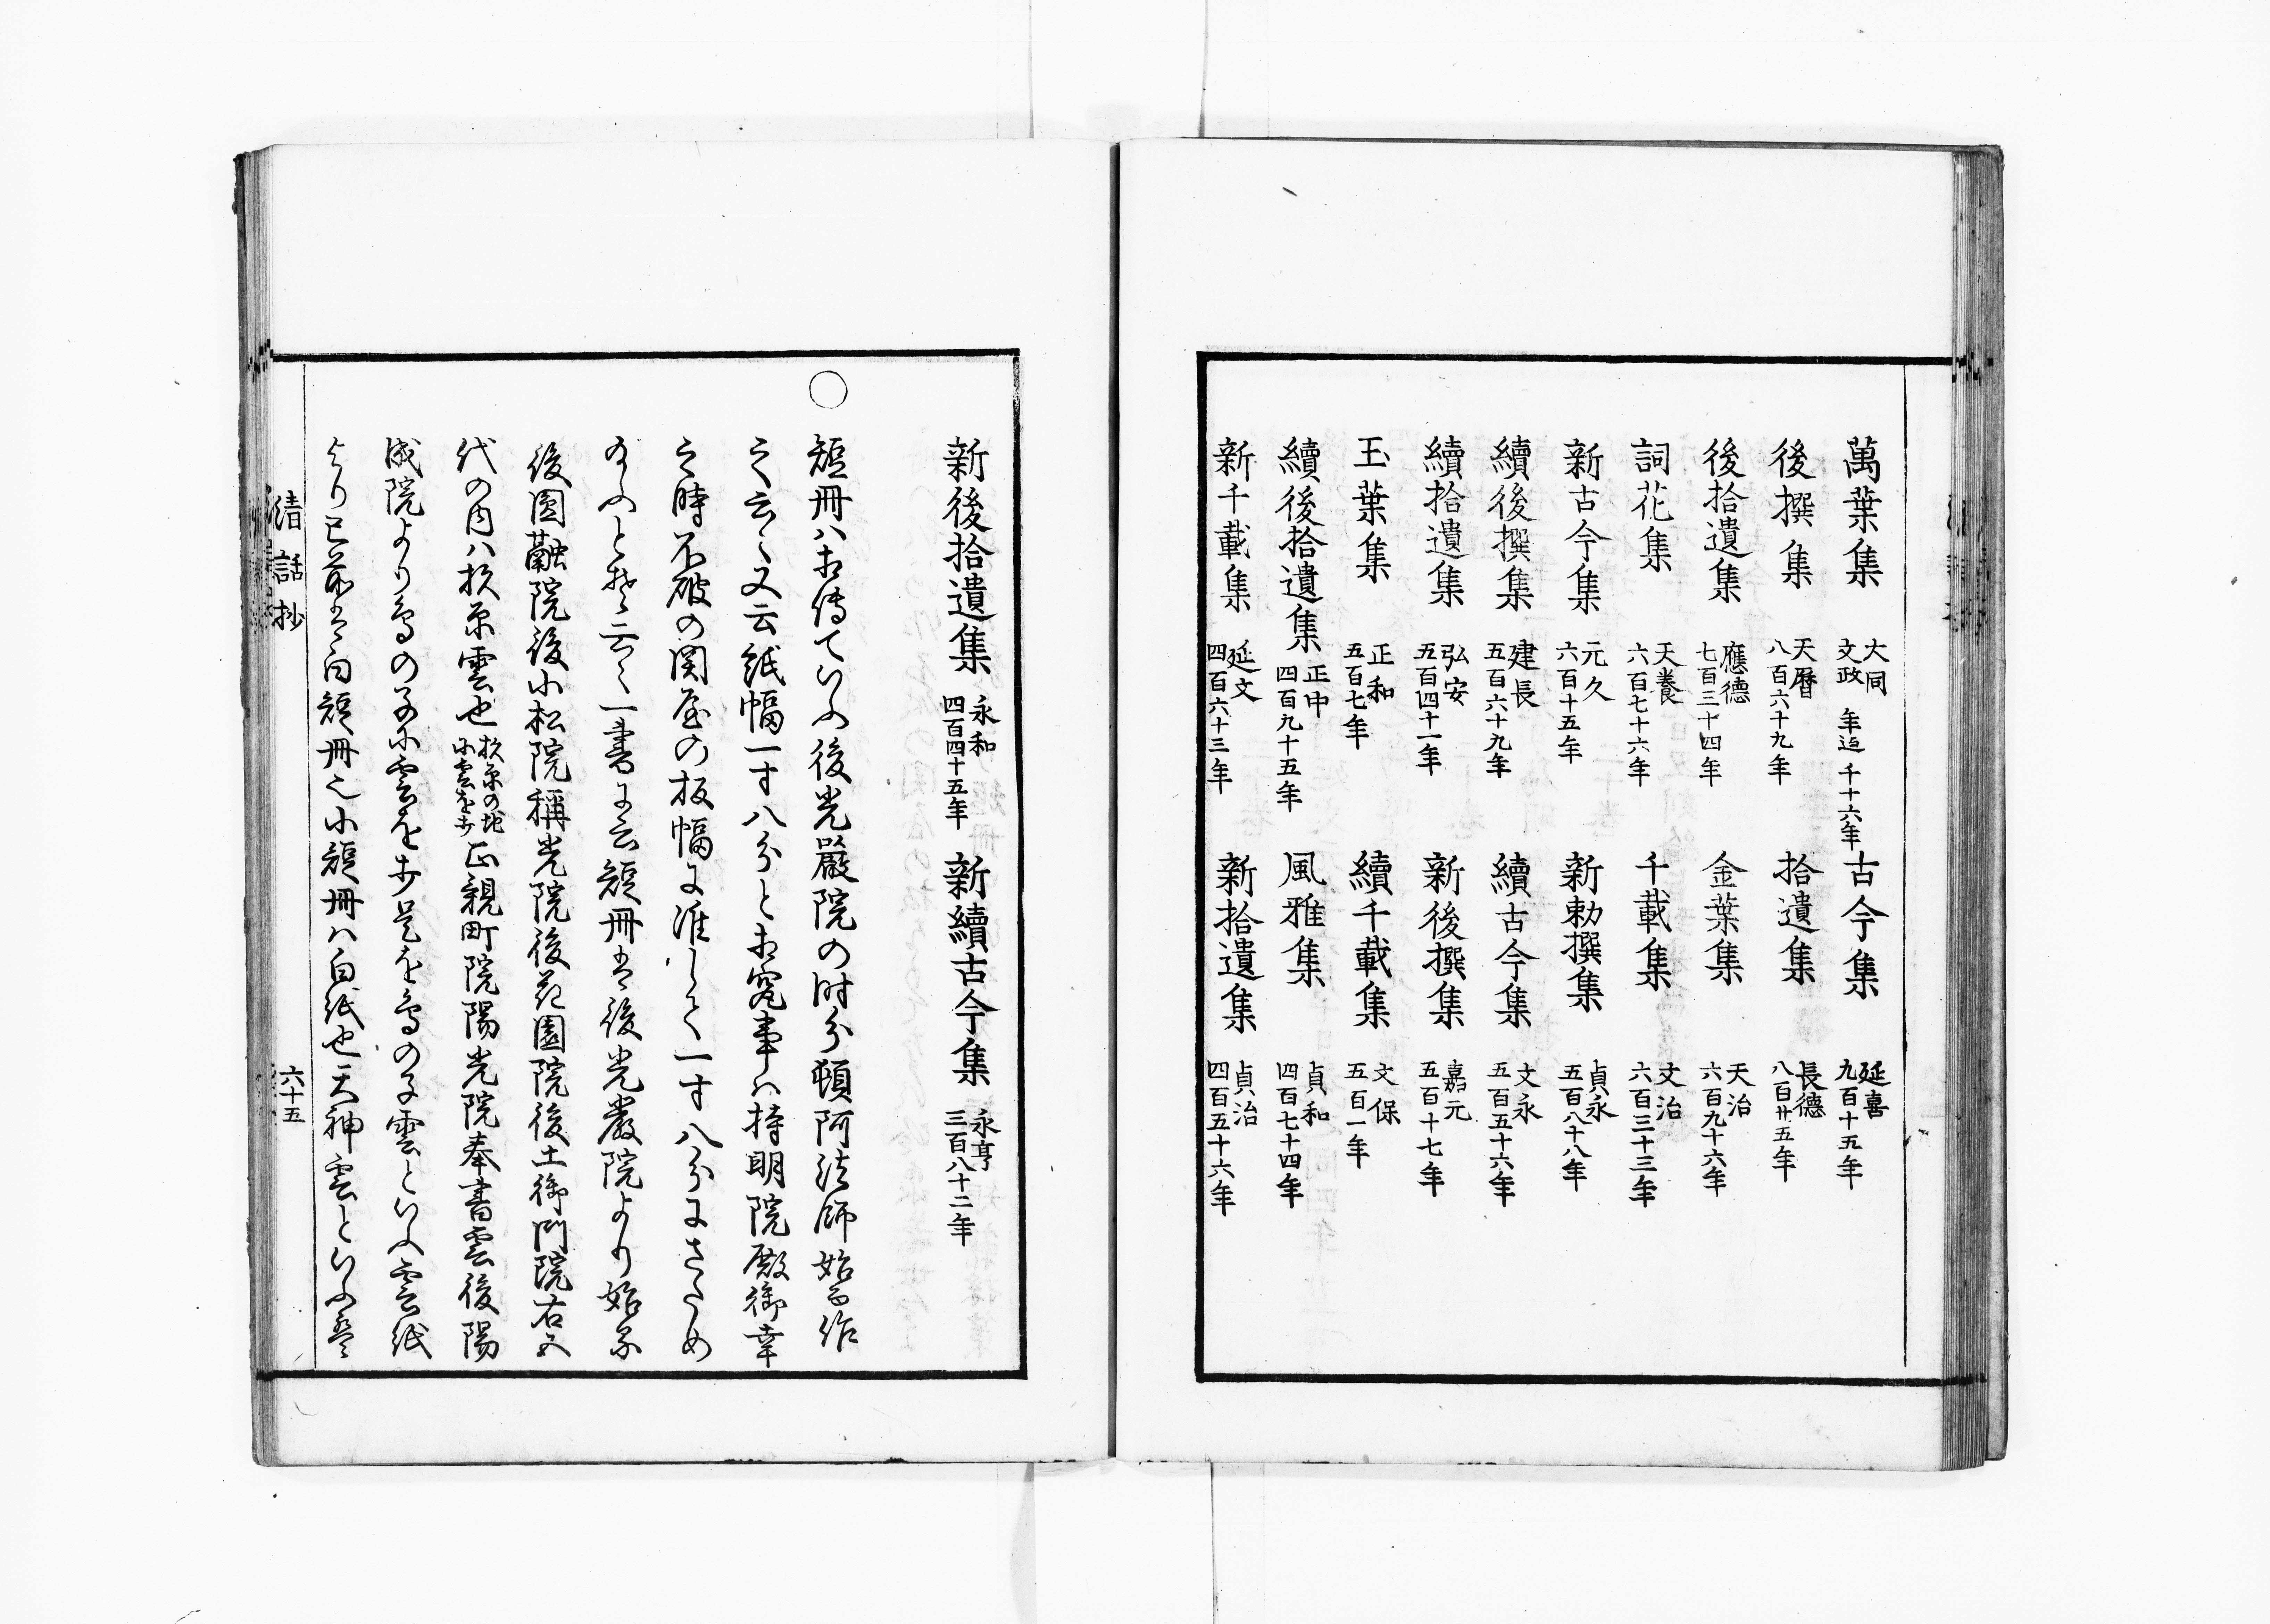 萬葉集 大同 文政 年迠 千十六年 古今集 延喜 九百十五年
後撰集 天暦 八百六十九年 拾遺集 長德 八百廿五年
後拾遺集 應德 七百三十四年 金葉集 天治 六百九十六年
詞花集 天養 六百七十六年 千載集 文治 六百三十三年
新古今集 元久 六百十五年 新勅撰集 貞永 五百八十八年
續後撰集 建長 五百六十九年 續古今集 文永 五百五十六年
續拾遺集 弘安 五百四十一年 新後撰集 嘉元 五百十七年
玉葉集 正和 五百七年 續千載集 文保 五百一年
續後拾遺集 正中 四百九十五年 風雅集 貞和 四百七十四年
新千載集 延文 四百六十三年 新拾遺集 貞治 四百五十六年
新後拾遺集 永和 四百四十五年 新續古今集 永享 三百八十二年
○短冊ハ相傳ていふ後光嚴院の時分頓阿法師始る作
之云云又云紙幅一寸八分と相究事ハ持明院殿御幸
之時不破の関屋の板幅に准して一寸八分にさため
ふと云々一書に云短冊は後光嚴院より始
後圓融院後小松院稱光院後花園院後土御門院右五
代の内ハ杦原雲也 杦原の地 小雲を步 正親町院陽光院奉書雲後陽
成院より鳥の子小雲を步是を鳥の子雲といふ雲紙
より已前は白短冊也小短冊ハ白紙也天神雲といふ
清話抄
六十五